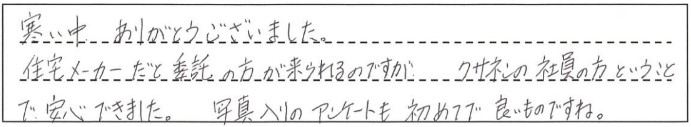 寒い中 ありがとうございました。
住宅メーカーだと委託の方が来られるのですが クサネンの社員の方ということ
で安心できました。 写真入りのアンケートも初めてで良いものですね。